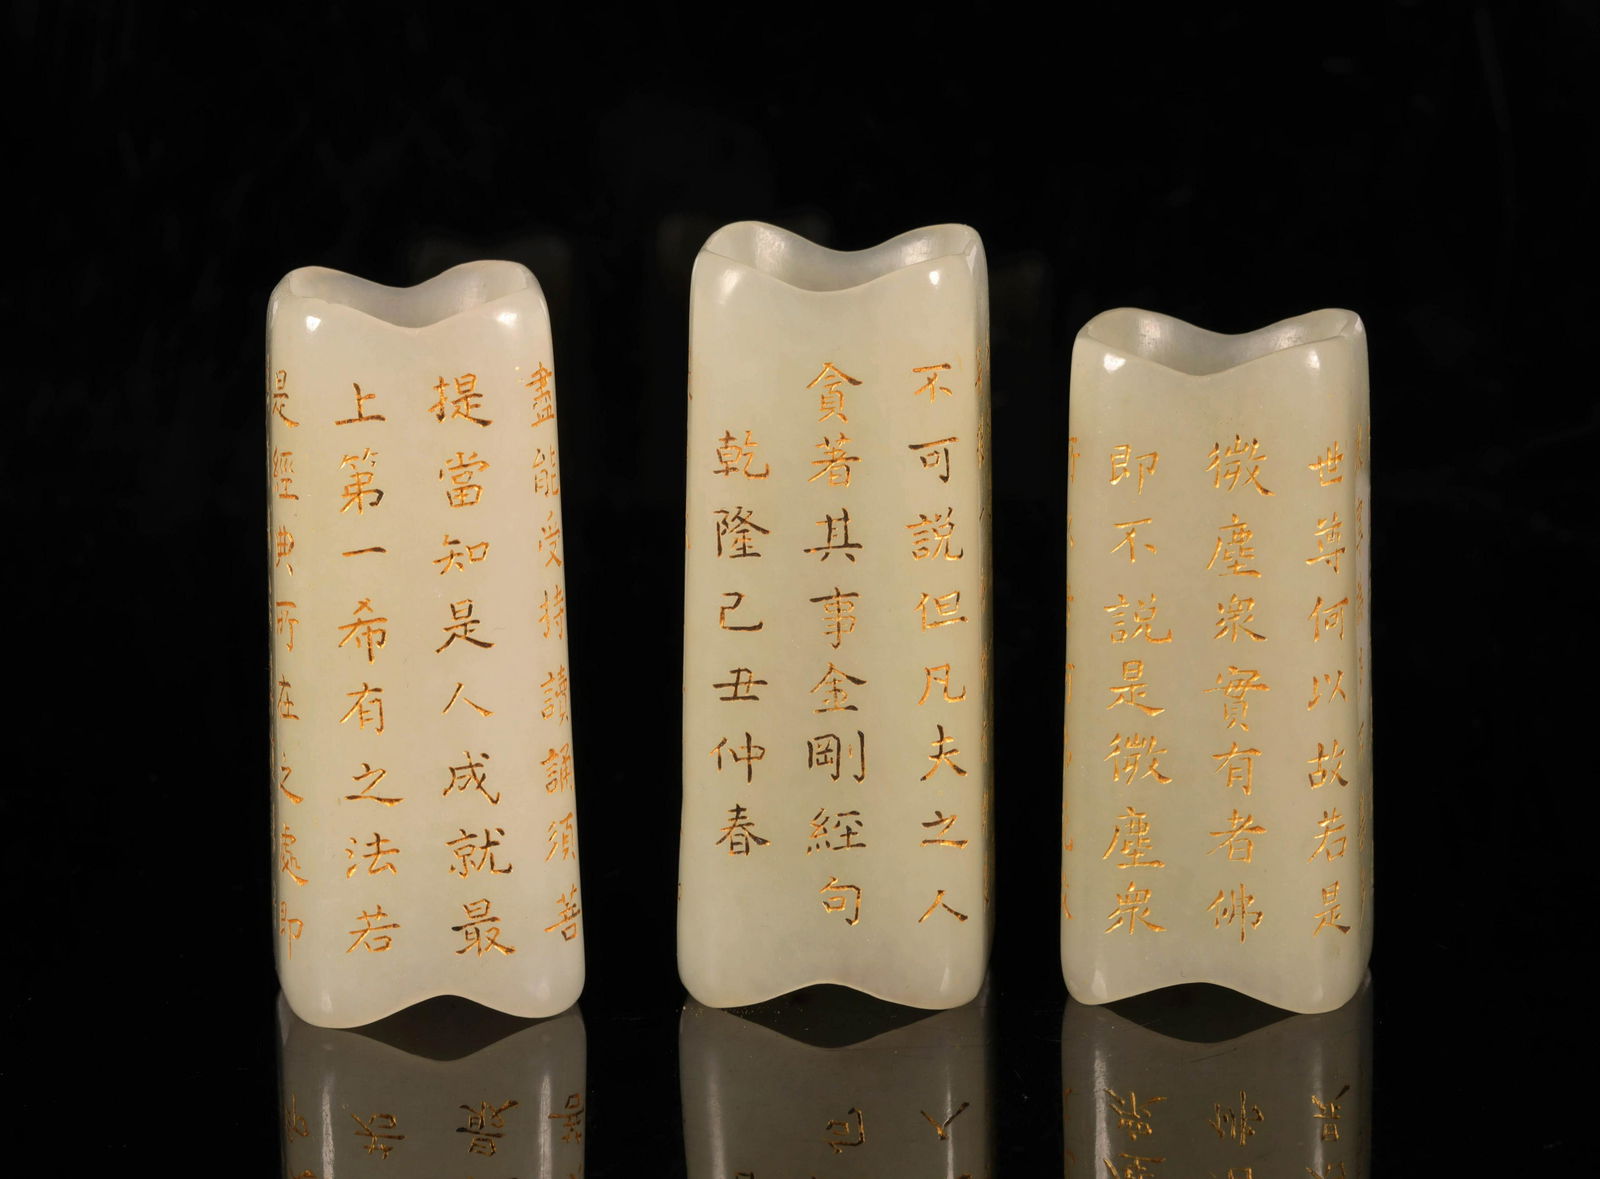 盡能受持讀誦須菩
提當知是人成就最
上第一希有之法若
是經典所在之處即
不可説但凡夫之人
貪著其事金剛經句
乾隆己丑仲春
世尊何以故若是
微塵衆實有者佛
即不説是微塵衆